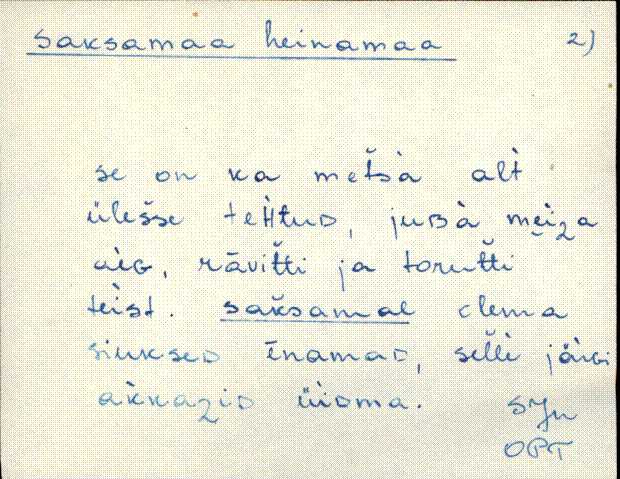 saksamaa heinamaa 2)
se on ka metšà alt
ülešse teHtuD, juBà mei̯za
aiG, rāvitti ja torutti
teist. sakšamaE olema
siukseD ēnamaD, selle järGi
akkaziD üiDma. SJn
OPT